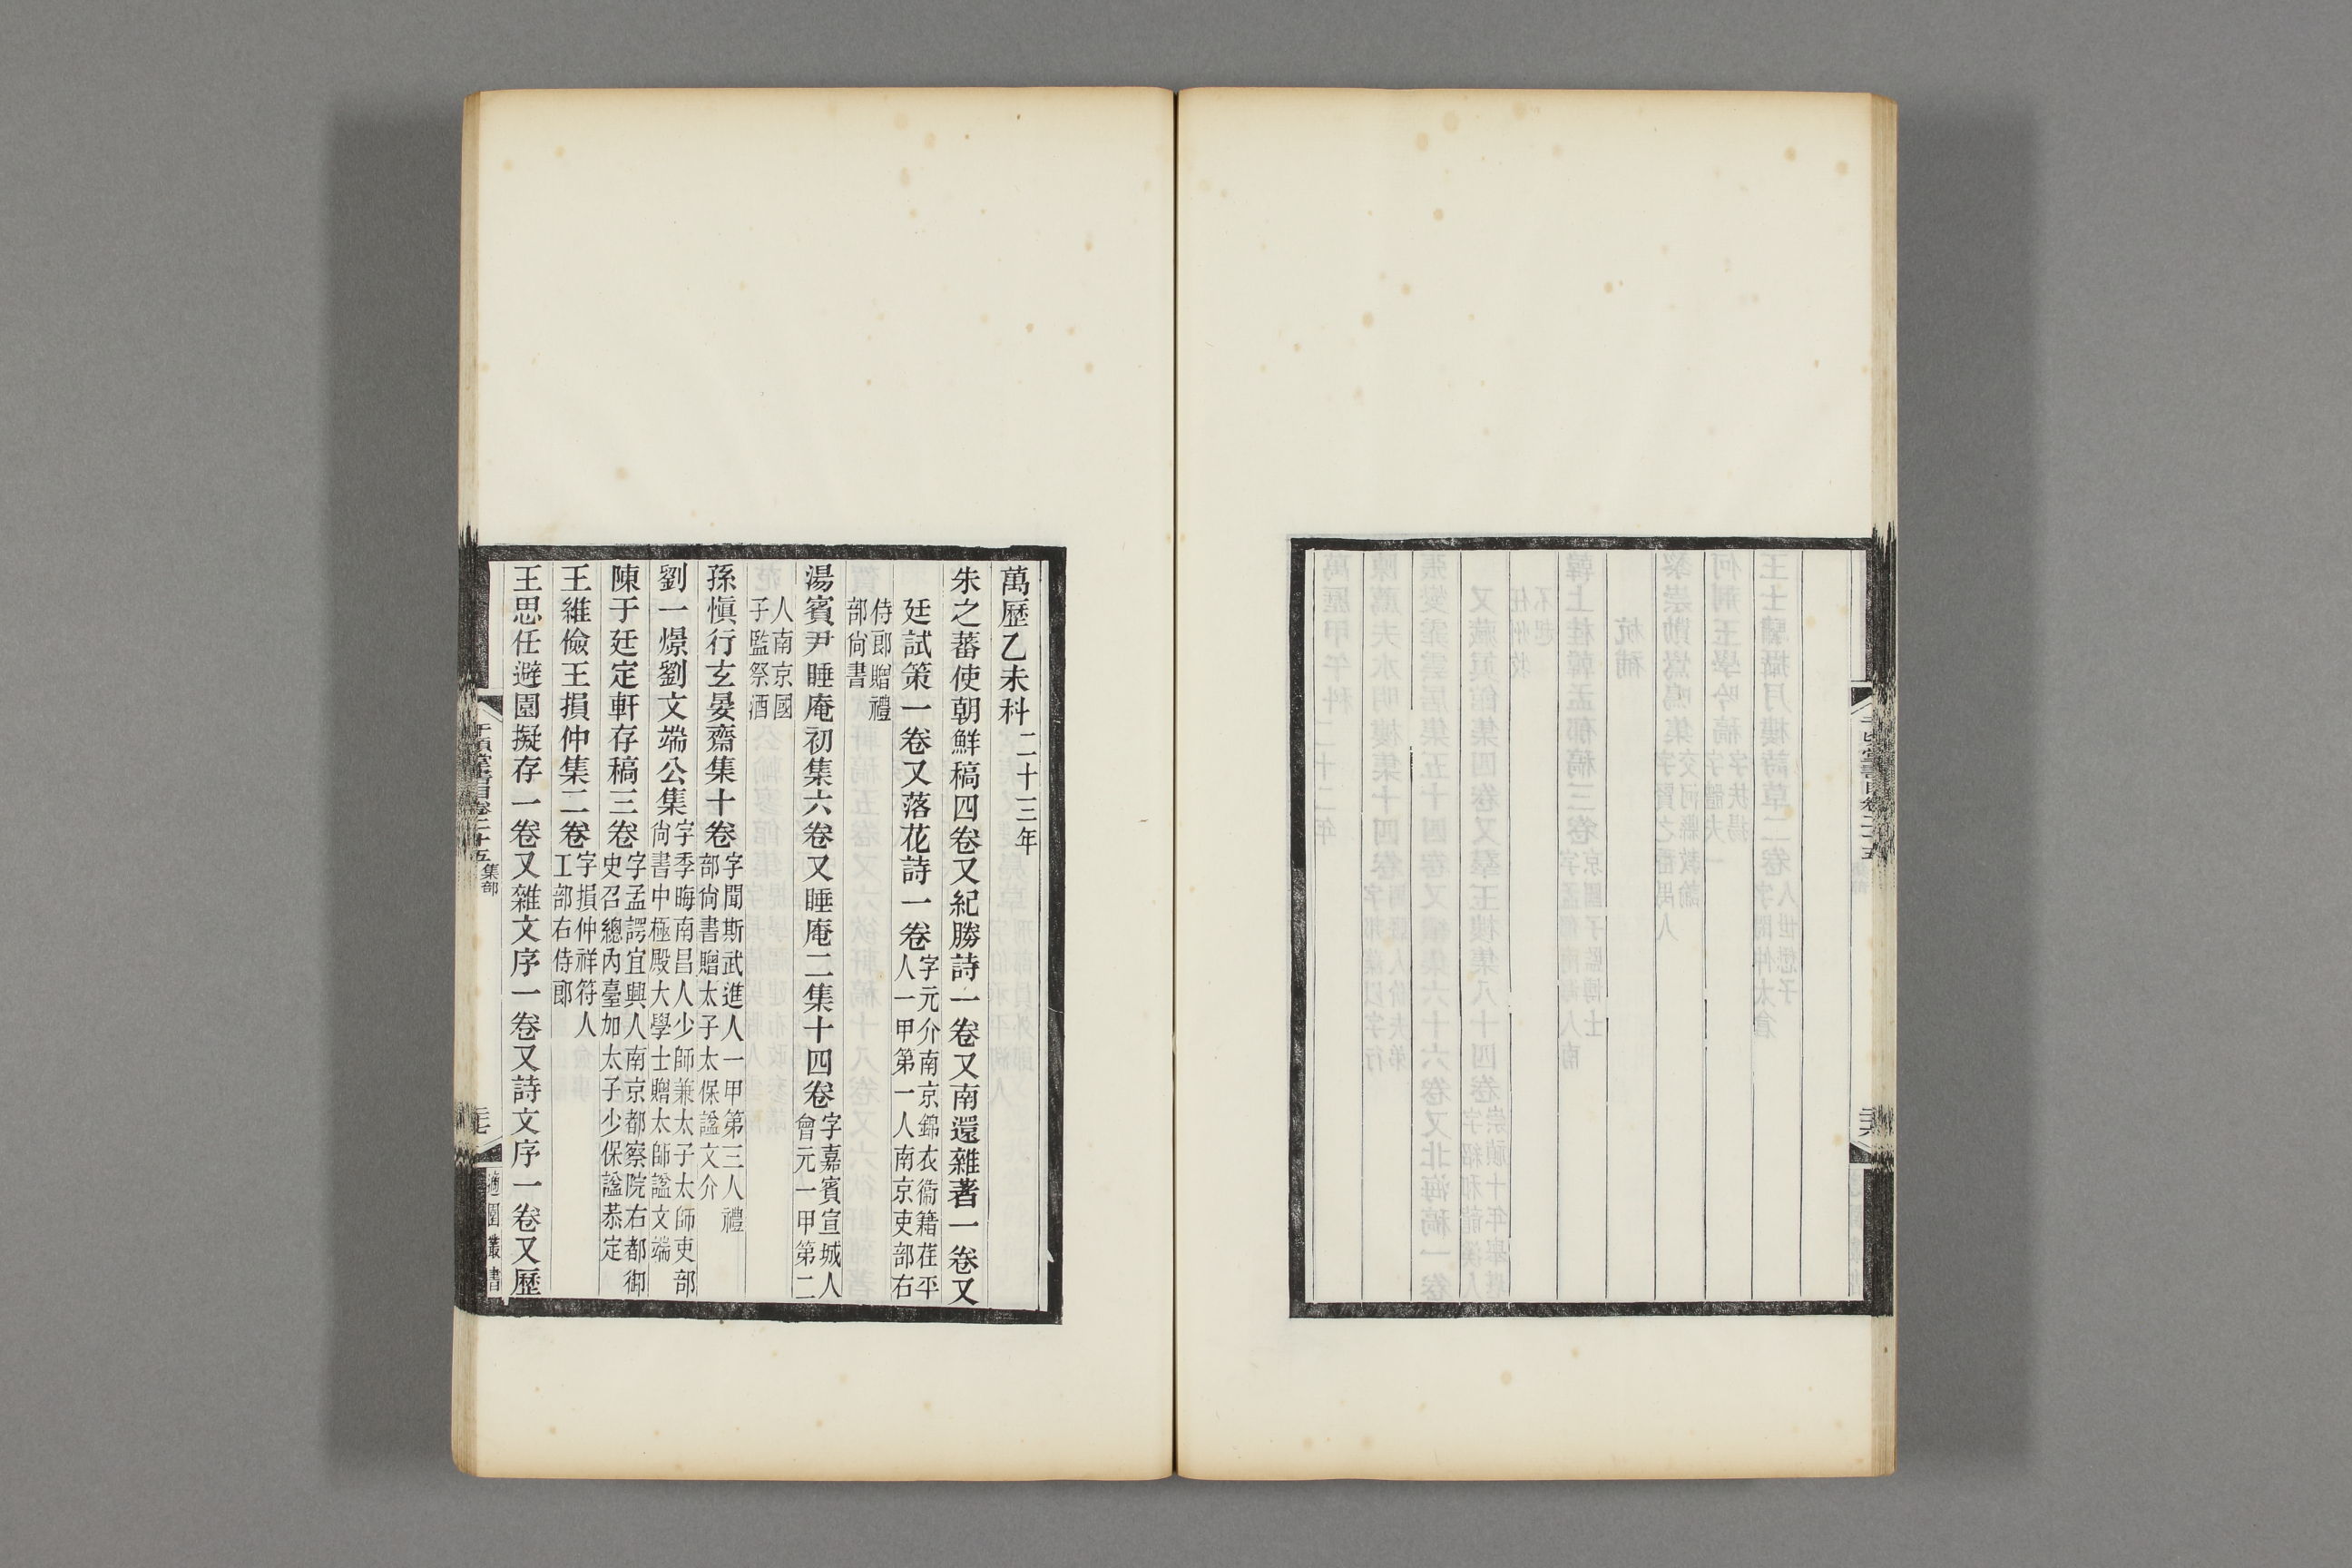 萬歷乙未科二十三年
朱之蕃使朝鮮稿四卷又紀勝詩一卷又南還雜著一卷又
廷試策一卷又落花詩一卷字元介南京錦衣衞籍茌平
人一甲第一人南京吏部右
侍郞贈禮
部尙書
湯賓尹睡庵初集六卷又睡庵二集十四卷字嘉賓宣城人
會元一甲第二
人南京國
子監祭酒
孫愼行玄晏齋集十卷字聞斯武進人一甲第三人禮
部尙書贈太子太保諡文介
劉一燝劉文端公集字季晦南昌人少師兼太子太師吏部
尙書中極殿大學士贈太師諡文端
陳于廷定軒存稿三卷字孟諤宜興人南京都察院右都御
史召總內臺加太子少保諡恭定
王維儉王損仲集二卷字損仲祥符人
工部右侍郞
王思任避園擬存一卷又雜文序一卷又詩文序一卷又歷
千頃堂書目卷二十五 集部
二十七
適園叢書